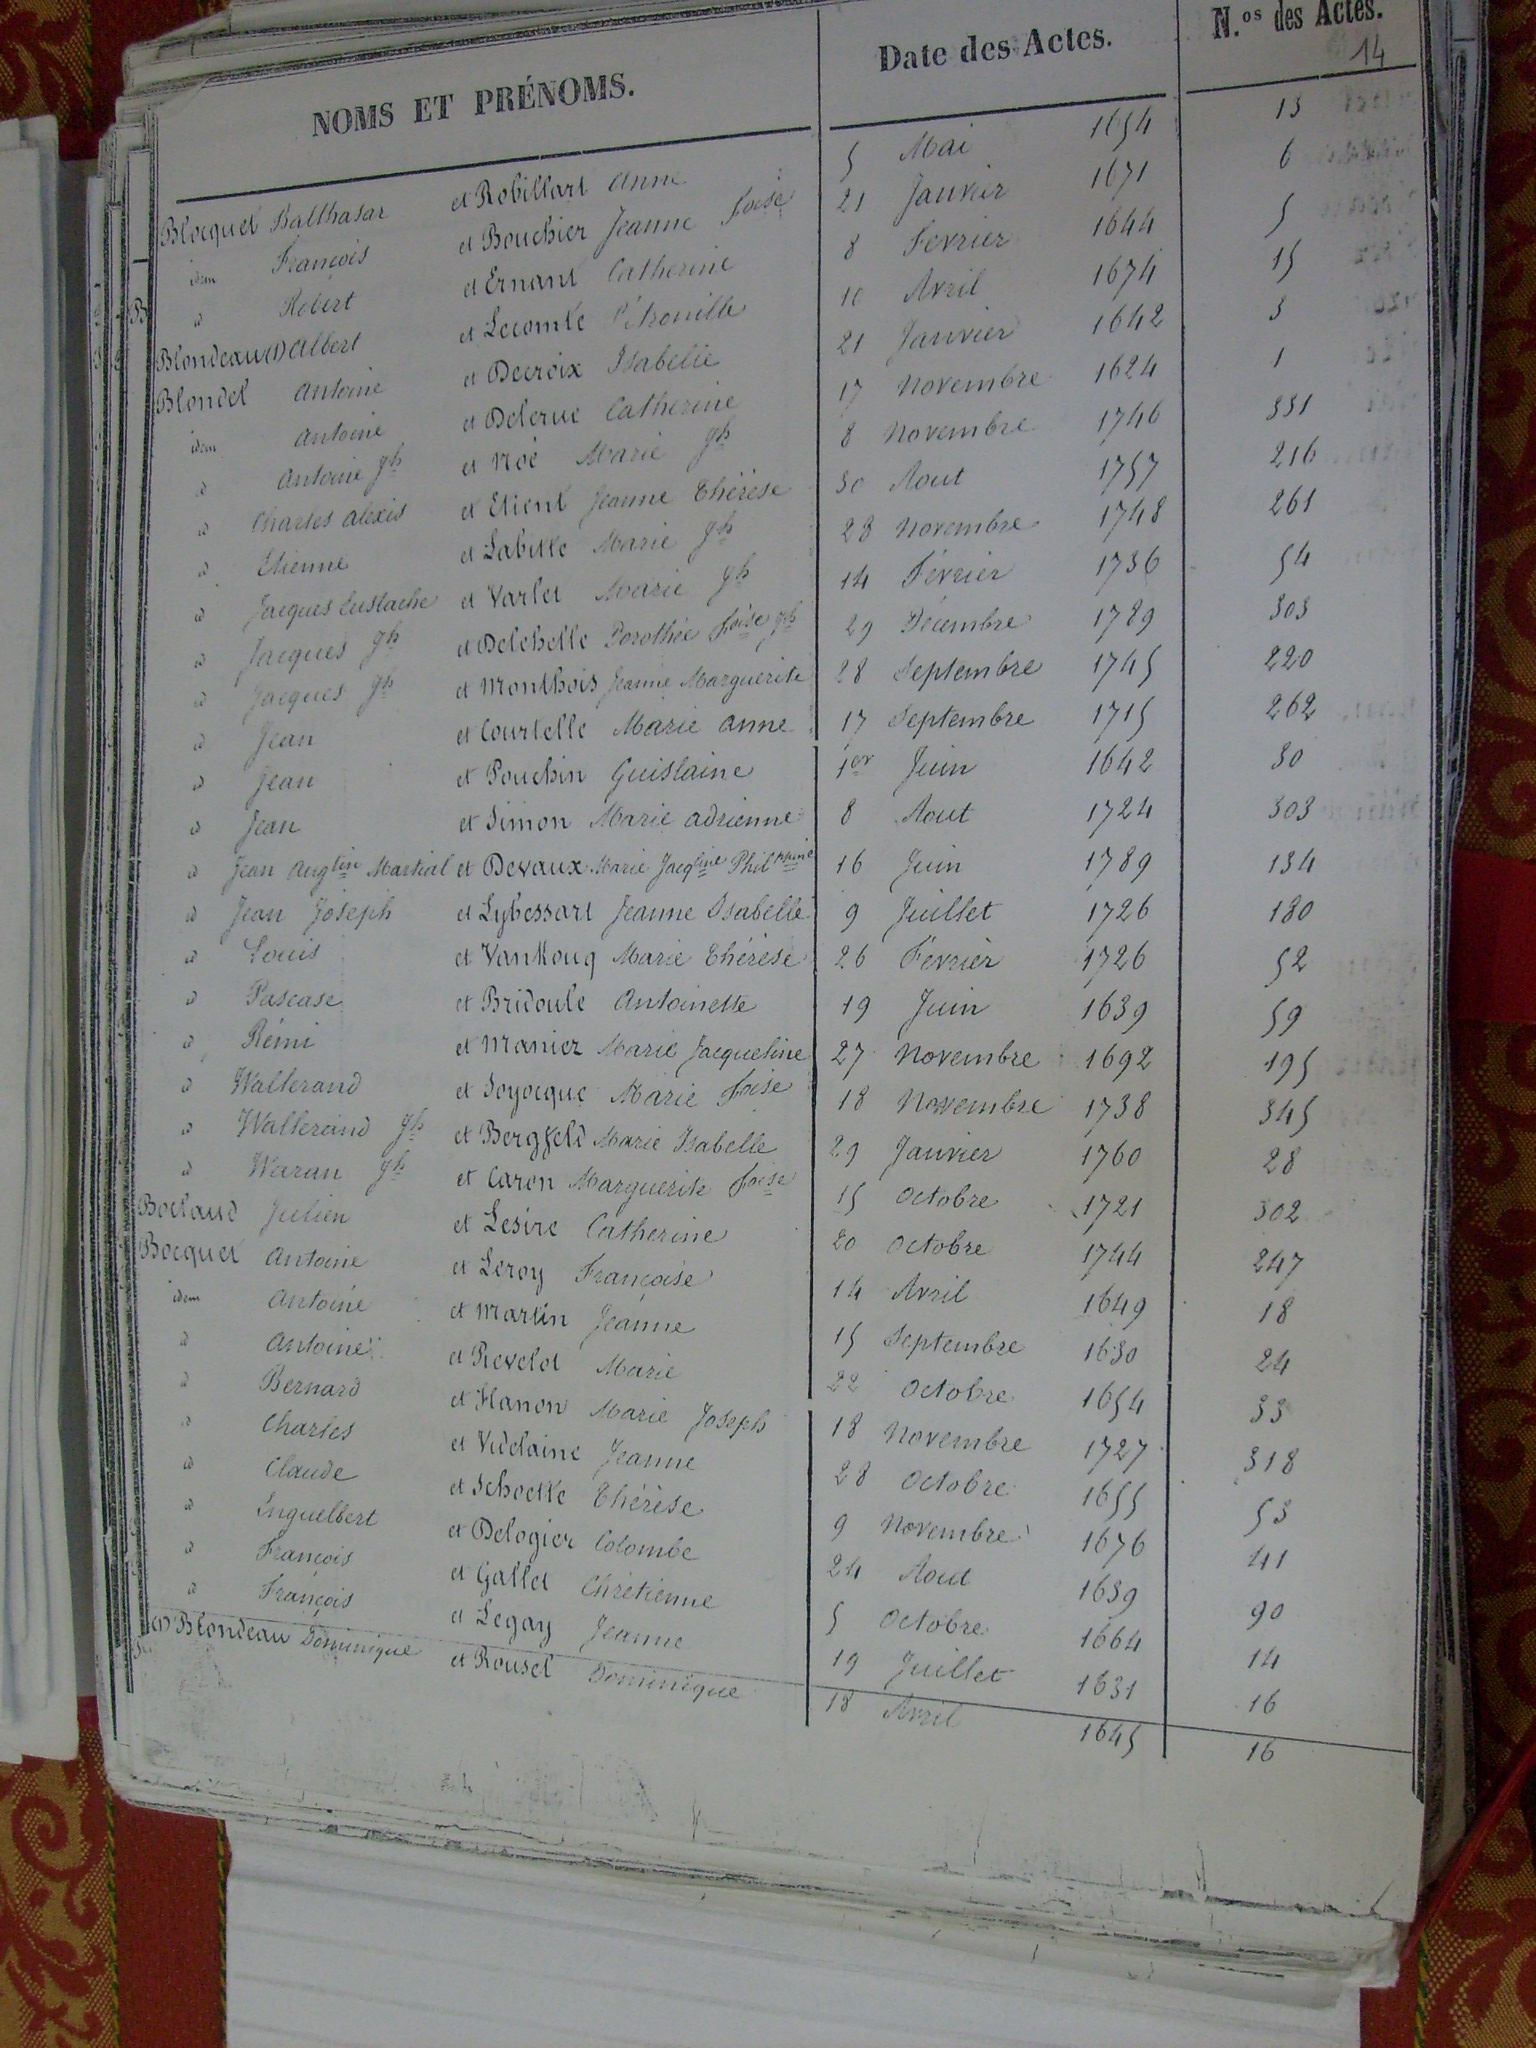 NOMS ET PRÉNOMS. Date des Actes. N.os des Actes.
14
Blocquel Balthasar et Robillart Anne 5 Mai 1654 13
idem François et Bouchier Jeanne Foise 21 Janvier 1671 6
id Robert et Ernant Catherine 8 Fevrier 1644 5
Blondeau (1) Albert et Lecomte Pétronille 10 Avril 1674 15
Blondel Antoine et Decroix Isabelle 21 Janvier 1642 3
idem Antoine et Delerue Catherine 17 Novembre 1624 1
id Antoine gh et Noé Marie gh 8 Novembre 1746 331
id Charles Alexis et Etient Jeanne Thérèse 30 Aout 1757 216
id Etienne et Labitte Marie gh 28 Novembre 1748 261
id Jacques Eustache et Varlet Marie gh 14 Février 1736 54
id Jacques gh et Delehelle Dorothée Foise gh 29 Décembre 1789 303
id Jacques gh et Monthois Jeanne Marguerite 28 Septembre 1745 220
id Jean et Courtelle Marie Anne 17 Septembre 1715 262
id Jean et Pouchin Guislaine 1er Juin 1642 30
id Jean et Simon Marie Adrienne 8 Aout 1724 303
id Jean Augtin Martial et Devaux Marie Jacqline Philppine 16 Juin 1789 134
id Jean Joseph et Lybessart Jeanne Isabelle 9 Juillet 1726 180
id Louis et Vankouq Marie Thérèse 26 Février 1726 52
id Pascase et Bridoule Antoinette 19 Juin 1639 59
id Rémi et Manier Marie Jacqueline 27 Novembre 1692 195
id Wallerand et Soyocque Marie Foise 18 Novembre 1738 345
id Wallerand gh et Bergfeld Marie Isabelle 29 Janvier 1760 28
id Waran gh et Caron Marguerite Foise 15 Octobre 1721 302
Boclaud Julien et Lesire Catherine 20 Octobre 1744 247
Bocquel Antoine et Leroy Françoise 14 Avril 1649 18
idem Antoine et Martin Jeanne 15 Septembre 1630 24
id Antoine et Revelot Marie 22 Octobre 1654 33
id Bernard et Hanon Marie Joseph 18 Novembre 1727 318
id Charles et Videlaine Jeanne 28 Octobre 1655 53
id Claude et Schoette Thérèse 9 Novembre 1676 41
id Inguelbert et Delogier Colombe 24 Aout 1639 90
id François et Gallet Chrétienne 5 Octobre 1664 14
id François et Legay Jeanne 19 Juillet 1631 16
(1) Blondeau Dominique et Rousel Dominique 18 Avril 1645 16